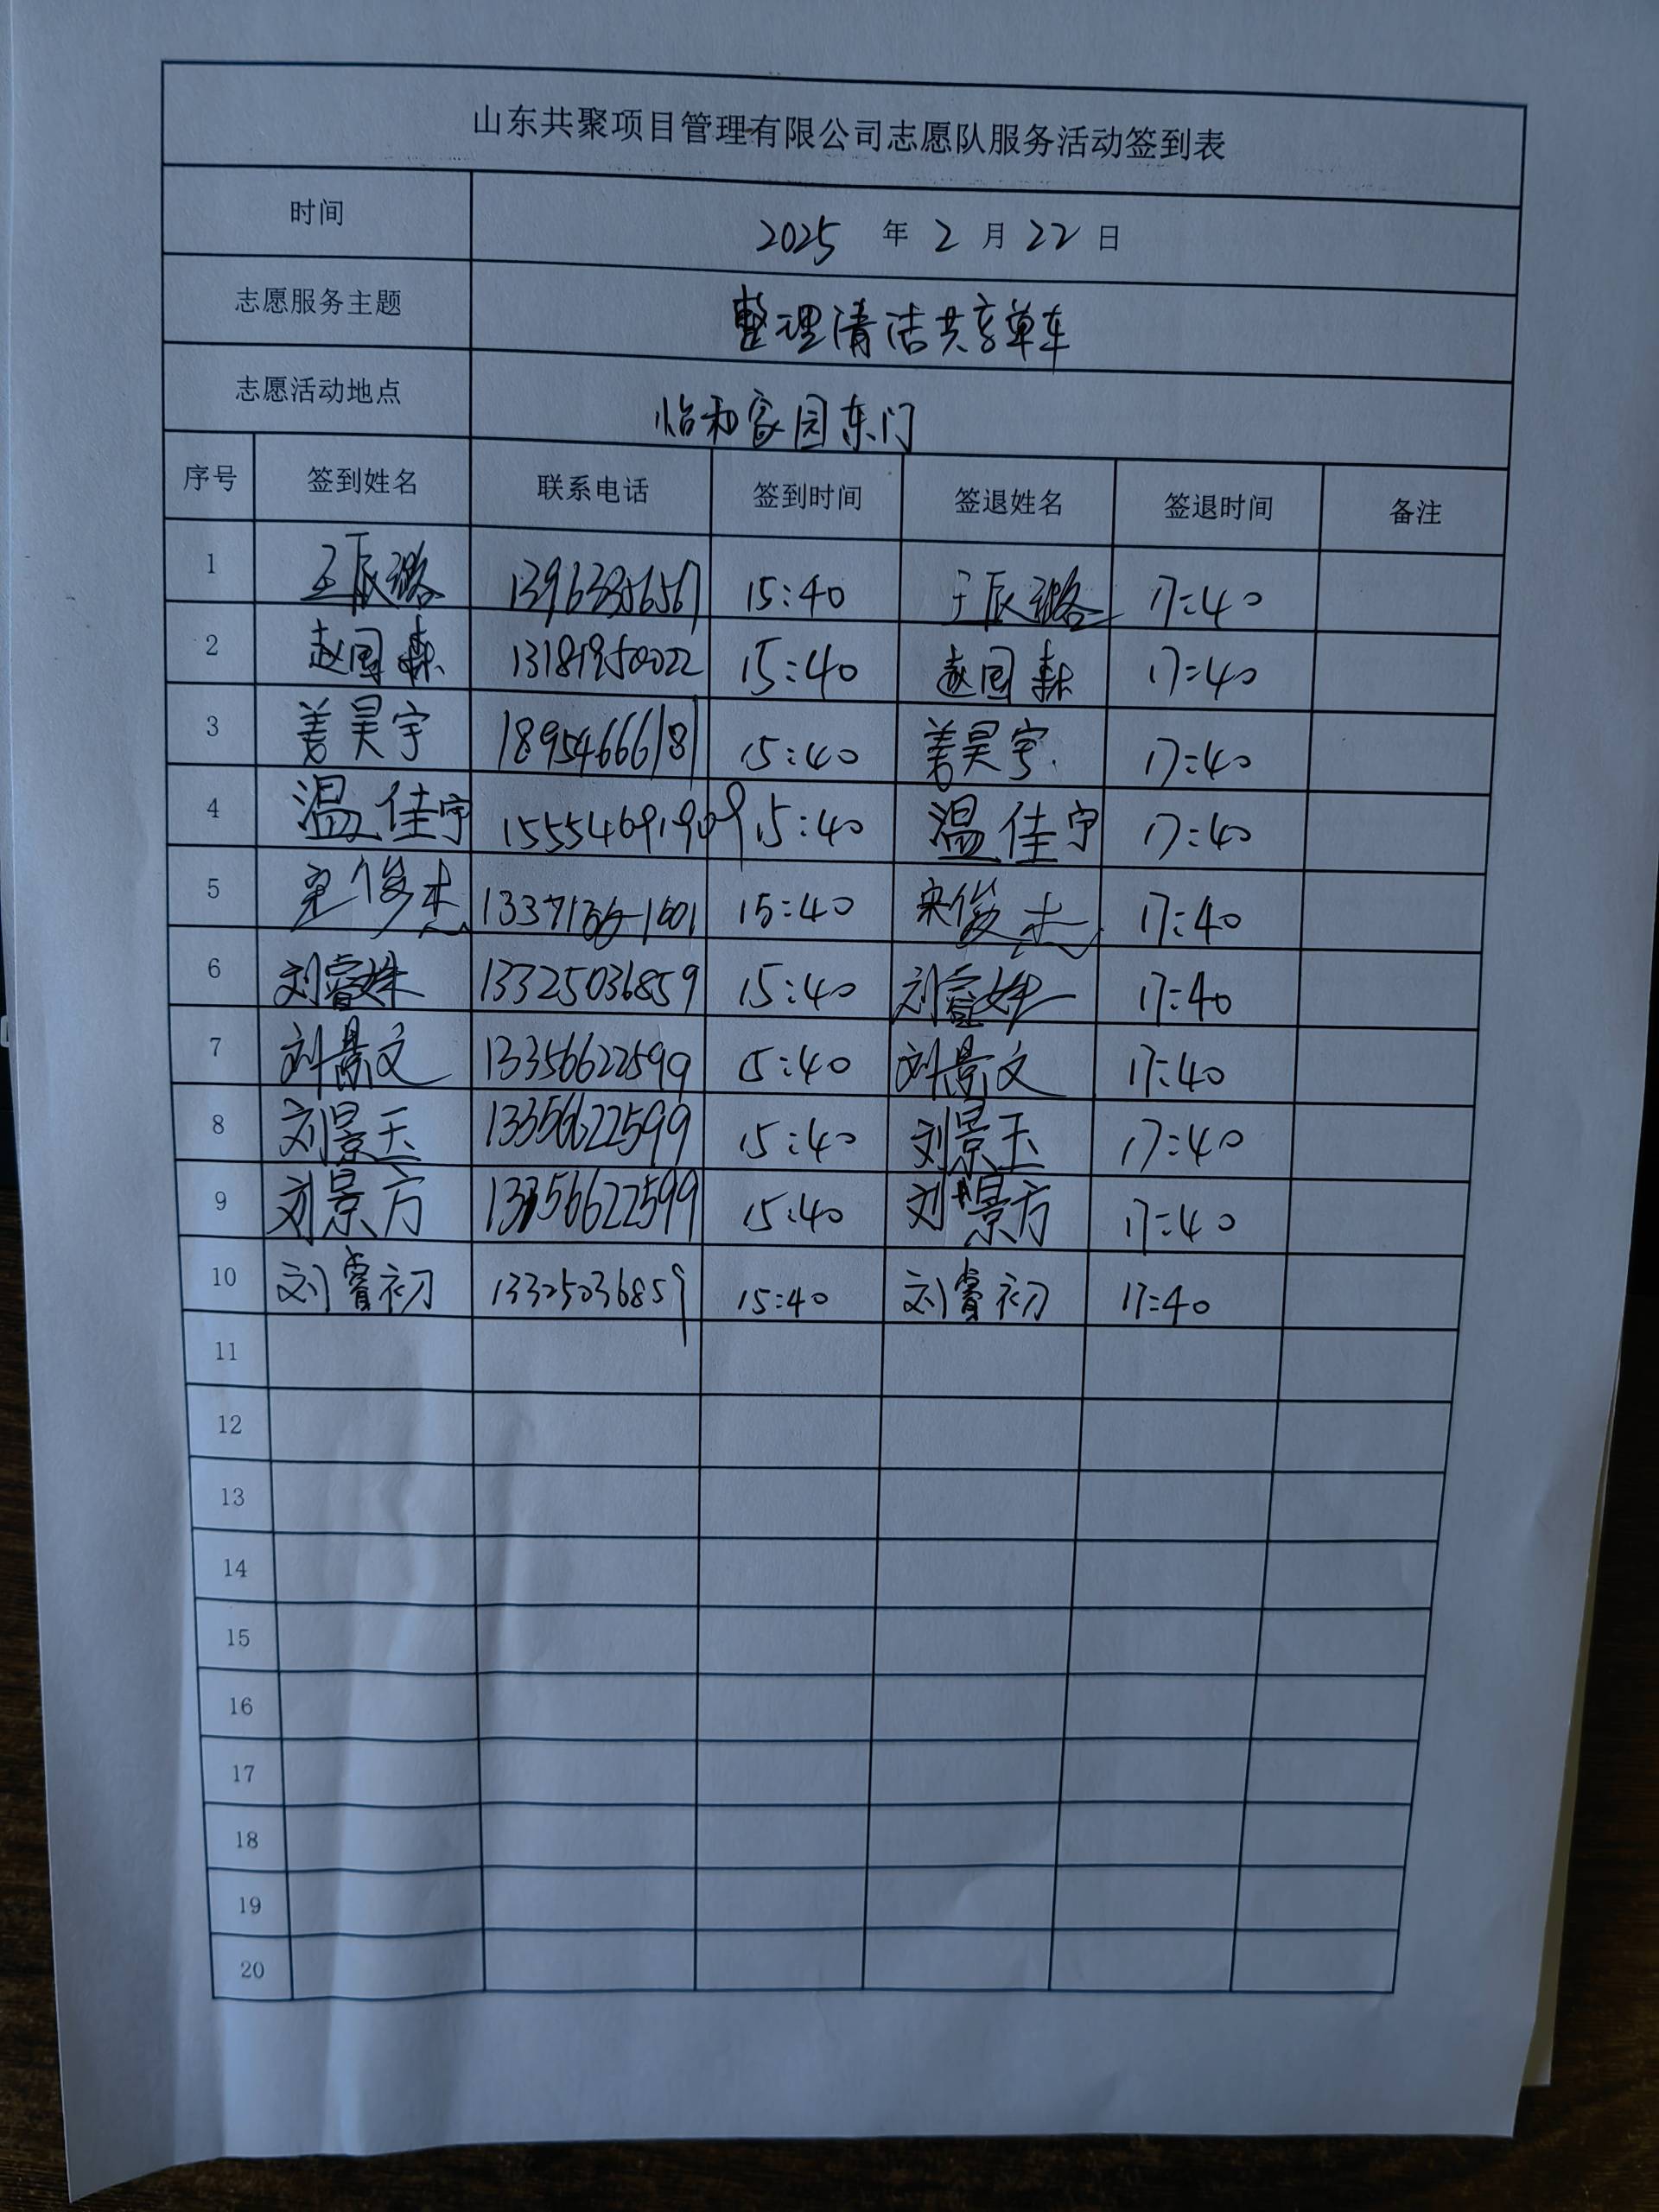 山东共聚项目管理有限公司志愿队服务活动签到表
时间 2025 年 2 月 22 日
志愿服务主题 整理清洁共享单车
志愿活动地点 怡和家园东门
序号 签到姓名 联系电话 签到时间 签退姓名 签退时间 备注
1 15:40 17:40
2 赵国森 13181950022 15:40 赵国森 17:40
3 姜昊宇 18954666181 15:40 姜昊宇 17:40
4 温佳宇 15:40 温佳宇 17:40
5 宋俊杰 15:40 宋俊杰 17:40
6 刘睿姝 13325036859 15:40 刘睿姝 17:40
7 刘景文 13356622599 15:40 刘景文 17:40
8 刘景玉 13356622599 15:40 刘景玉 17:40
9 刘景方 13356622599 15:40 刘景方 17:40
10 刘睿初 13325036859 15:40 刘睿初 17:40
11
12
13
14
15
16
17
18
19
20